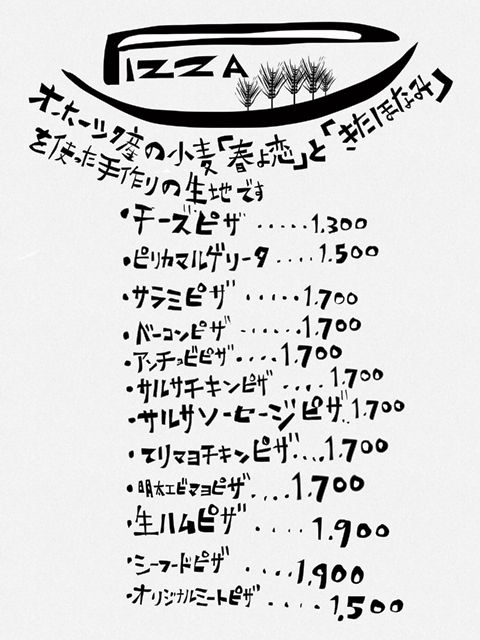 PIZZA
オホーツク産の小麦「春よ恋」と「きたほなみ」
を使った手作りの生地です
・チーズピザ.....1.300
・ピリカマルゲリータ....1.500
・サラミピザ.....1.700
・ベーコンピザ......1.700
・アンチョビピザ....1.700
・サルサチキンピザ....1.700
・サルサソーセージピザ..1.700
・テリマヨチキンピザ....1.700
・明太エビマヨピザ....1.700
・生ハムピザ....1.900
・シーフードピザ....1.900
・オリジナルミートピザ....1.500